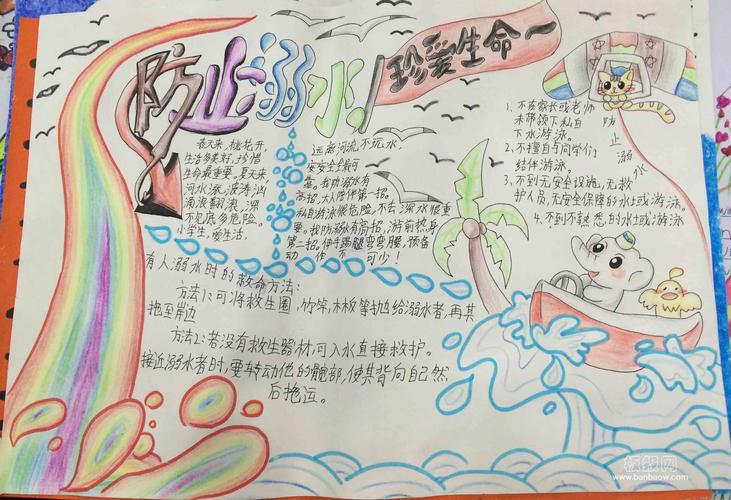 防止溺水!
珍爱生命
春天来,桃花开,
生活多美好,珍惜
生命最重要。夏天来
河水涨,波涛汹
涌浪翻滚,深
不见底多危险。
小学生,爱生活,
远离河流不玩水,
安安全全最可
靠。我防溺水有
高招,大人陪伴第一招。
私自游泳很危险,不去深水很重
要。我防溺水有高招,游前热身
第二招,伸手踢腿弯弯腰,预备
动作不可少!
1、不在家长或老师
未带领下私自
下水游泳。
2、不擅自与同学们
结伴游泳。
3、不到无安全设施,无救
护人员,无安全保障的水土或游泳。
4、不到不熟悉的水土或游泳
防
止
溺
水
有人溺水时的救命方法:
方法1:可将救生圈,竹竿,木板等抛给溺水者,再其
拖至岸边
方法2:若没有救生器材,可入水直接救护。
接近溺水者时,要转动他的髋部,使其背向自己然
后拖运。
板报网
www.banbaow.com